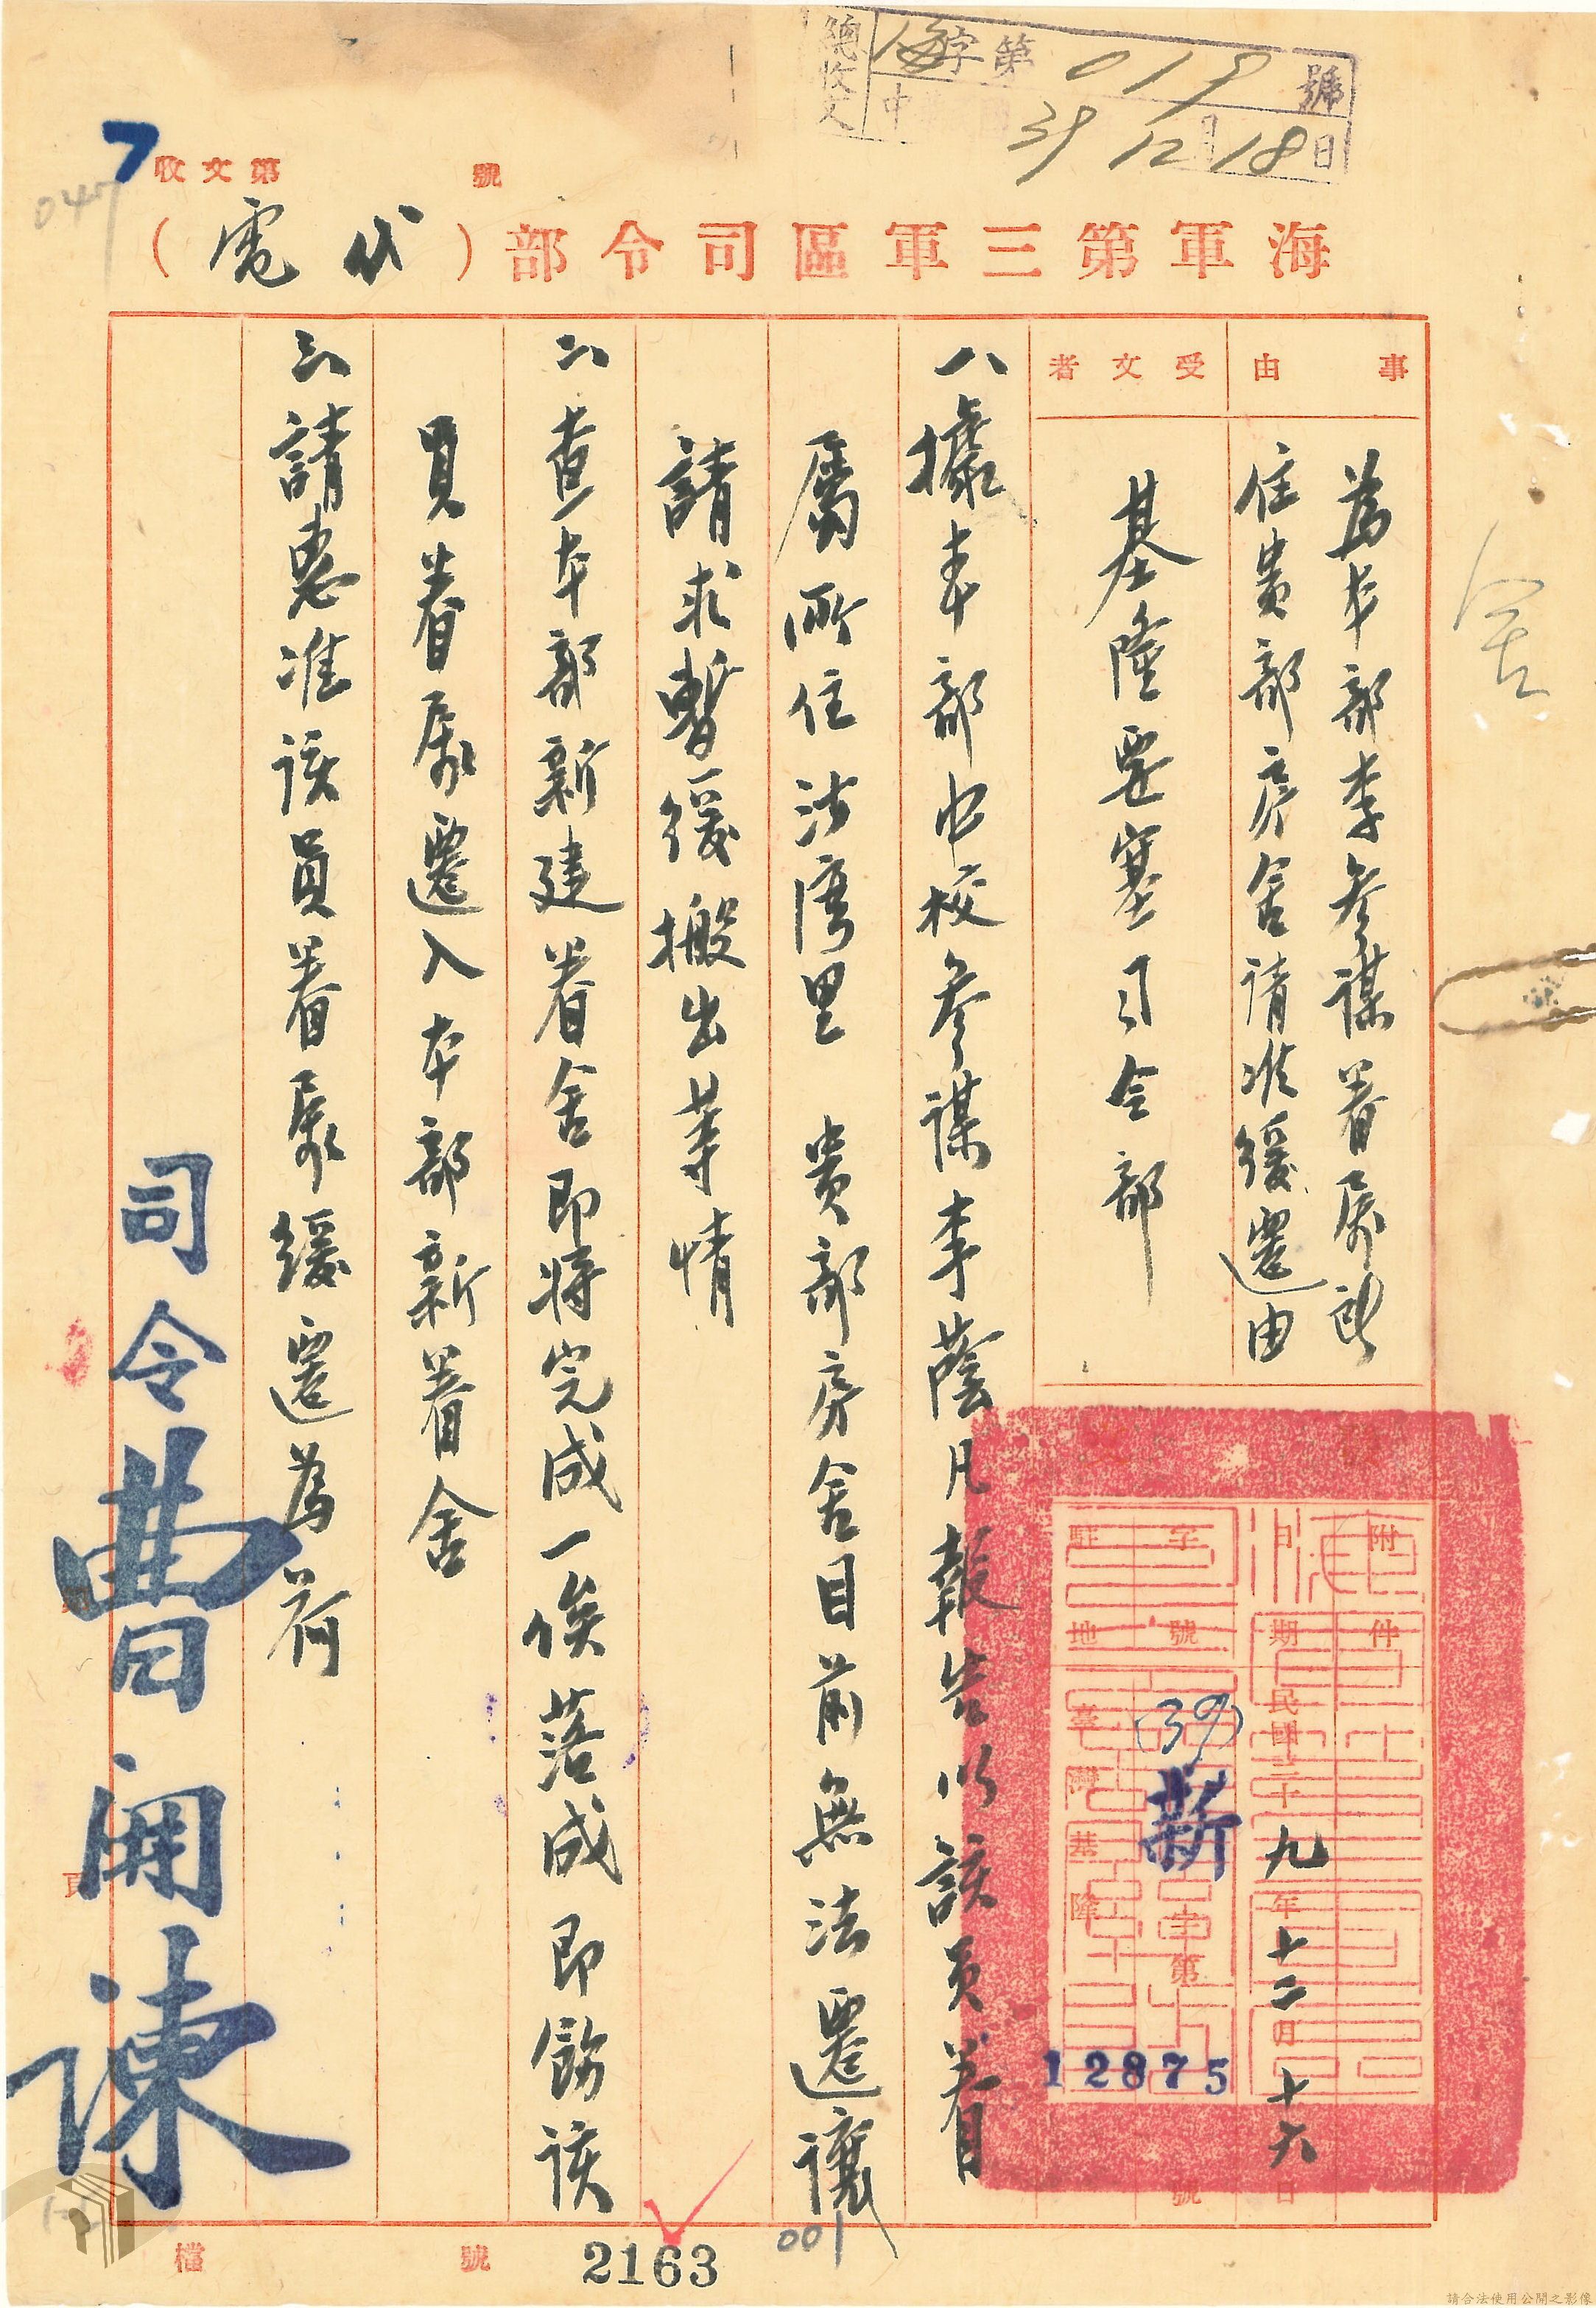 總收文 海字第019號
39 12月18日
7
047
收文第 號
海軍第三軍區司令部（代電）
事由
為本部李參謀眷屬所
住貴部房舍請准緩遷由
受文者
基隆要塞司令部
附件
日期
民國三十九年十二月十六日
字號
(39)新字第12875號
駐地
臺灣基隆
一、據本部中校參謀李蔭凡報告以該員眷
屬所住法灣里 貴部房舍目前無法遷讓
請求暫緩搬出等情
二、查本部新建眷舍即將完成一俟落成即飭該
員眷屬遷入本部新眷舍
三、請惠准該員眷屬緩遷為荷
司令曹開諫
檔 號
2163
001
請合法使用公開之影像